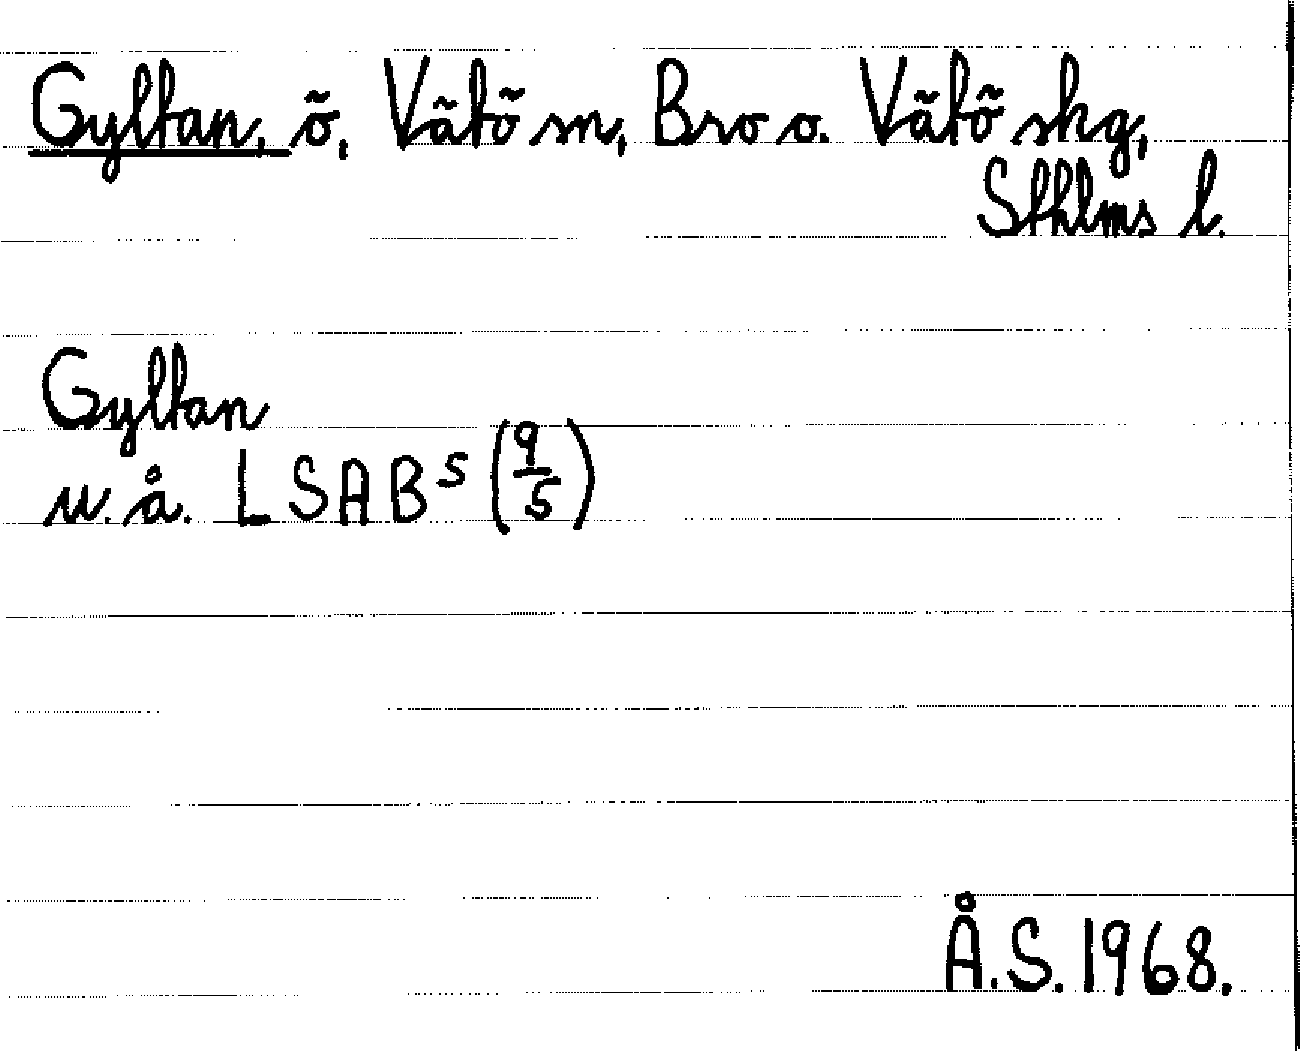 Gyltan, ö, Vätö sn, Bro o. Vätö skg,
Sthlms l.
Gyltan
u. å. LSA B⁵ (9/5)
Å.S. 1968.